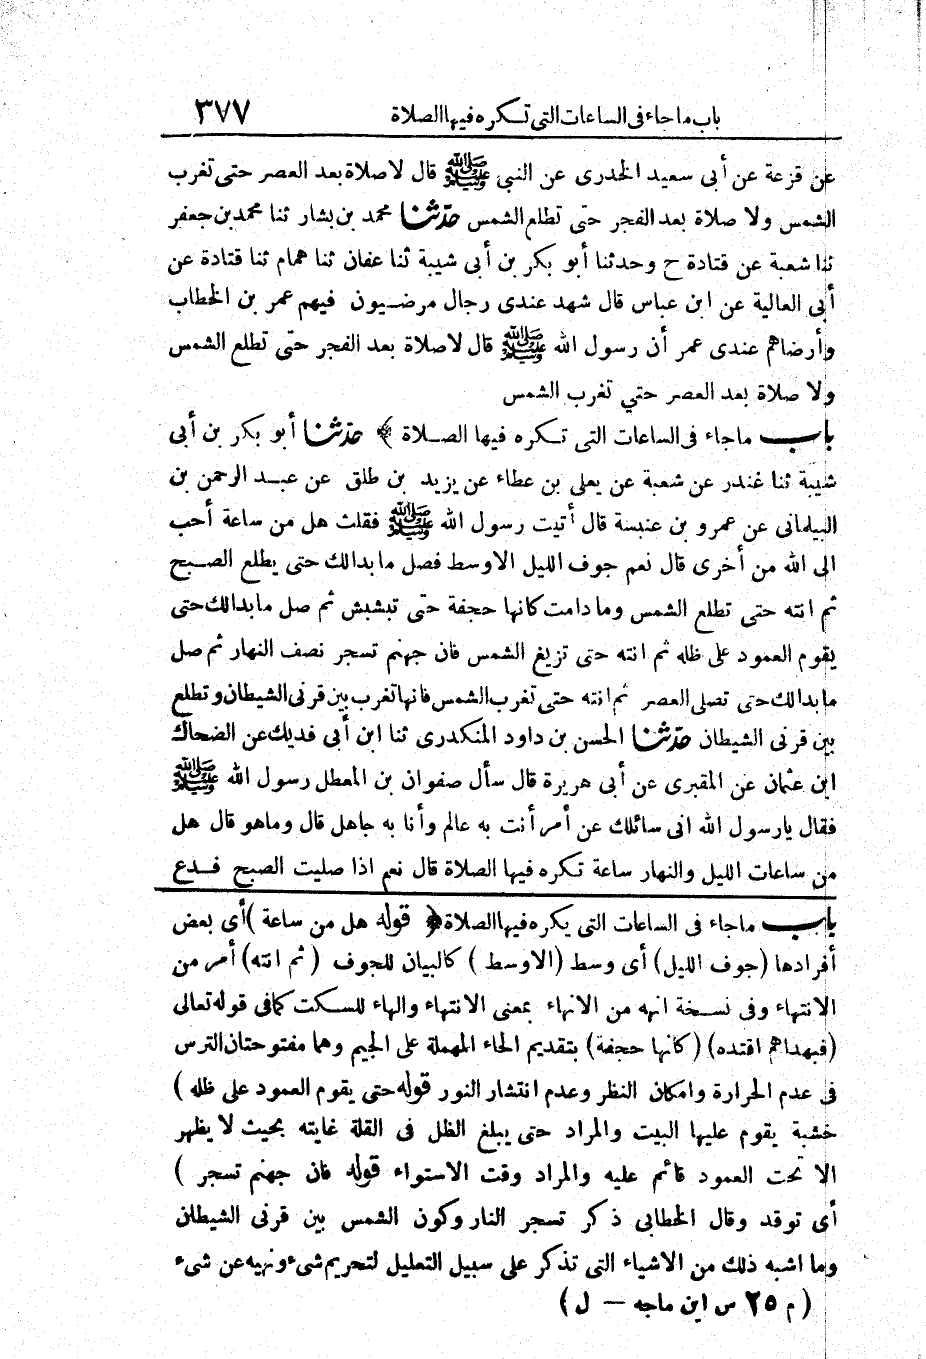 باب ماجاء فى الساعات التى تكره فيها الصلاة ٣٧٧
عن قزعة عن أبى سعيد الخدرى عن النبى ﷺ قال لاصلاة بعد العصر حتى تغرب
الشمس ولا صلاة بعد الفجر حتى تطلع الشمس حدّثنا محمد بن بشار ثنا محمد بن جعفر
ثنا شعبة عن قتادة ح وحدثنا أبو بكر بن أبى شيبة ثنا عفان ثنا همام ثنا قتادة عن
أبى العالية عن ابن عباس قال شهد عندى رجال مرضيون فيهم عمر بن الخطاب
وأرضاهم عندى عمر أن رسول الله ﷺ قال لاصلاة بعد الفجر حتى تطلع الشمس
ولا صلاة بعد العصر حتي تغرب الشمس
باب ماجاء فى الساعات التى تكره فيها الصلاة ﴾ حدّثنا أبو بكر بن أبى
شيبة ثنا غندر عن شعبة عن يعلى بن عطاء عن يزيد بن طلق عن عبد الرحمن بن
البيلمانى عن عمرو بن عنبسة قال أتيت رسول الله ﷺ فقلت هل من ساعة أحب
الى الله من أخرى قال نعم جوف الليل الاوسط فصل مابدالك حتى يطلع الصبح
ثم انته حتى تطلع الشمس ومادامت كانها حجفة حتى تبشبش ثم صل مابدالك حتى
يقوم العمود على ظله ثم انته حتى تزيغ الشمس فان جهنم تسجر نصف النهار ثم صل
مابدالك حتى تصلى العصر ثم انته حتى تغرب الشمس فانها تغرب بين قرنى الشيطان وتطلع
بين قرنى الشيطان حدّثنا الحسن بن داود المنكدرى ثنا ابن أبى فديك عن الضحاك
ابن عثمان عن المقبرى عن أبى هريرة قال سأل صفوان بن المعطل رسول الله ﷺ
فقال يارسول الله انى سائلك عن أمر أنت به عالم وأنا به جاهل قال وماهو قال هل
من ساعات الليل والنهار ساعة تكره فيها الصلاة قال نعم اذا صليت الصبح فدع
باب ماجاء فى الساعات التى يكره فيها الصلاة﴾ قوله هل من ساعة ) أى بعض
أفرادها (جوف الليل) أى وسط (الاوسط ) كالبيان للجوف ( ثم انته) أمر من
الانتهاء وفى نسخة انهه من الانهاء بمعنى الانتهاء والهاء للسكت كمافى قوله تعالى
(فبهداهم اقتده) (كانها حجفة) بتقديم الحاء المهملة على الجيم وهما مفتوحتان الترس
فى عدم الحرارة وامكان النظر وعدم انتشار النور قوله حتى يقوم العمود على ظله )
خشبة يقوم عليها البيت والمراد حتى يبلغ الظل فى القلة غايته بحيث لا يظهر
الا تحت العمود قائم عليه والمراد وقت الاستواء قوله فان جهنم تسجر )
أى توقد وقال الخطابى ذكر تسجر النار وكون الشمس بين قرنى الشيطان
وما اشبه ذلك من الاشياء التى تذكر على سبيل التعليل لتحريم شىء ونهيه عن شىء
( م ٢٥ س ابن ماجه — ل )